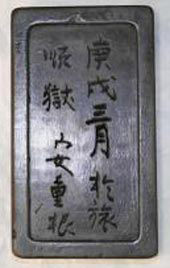 庚戌三月 於旅
順獄 安重根